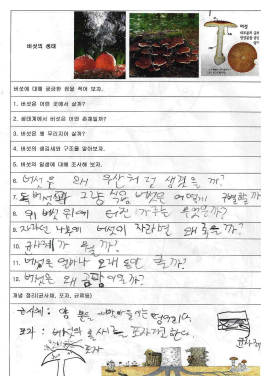 버섯의 생태
버섯
버섯에 대해 궁금한 점을 적어 보자.
1. 버섯은 어떤 곳에서 살까?
2. 생태계에서 버섯은 어떤 존재일까?
3. 버섯은 왜 무리지어 살까?
4. 버섯의 생김새와 구조를 알아보자.
5. 버섯의 일생에 대해 조사해 보자.
6. 버섯은 왜 우산처럼 생겼을까?
7. 독버섯과 그냥 식용 버섯은 어떻게 구별할까
8. 왜 버섯 위에 가루는 무엇일까?
9. 자라던 나무에 버섯이 자라면 왜 죽을까?
10. 균사체가 뭘까?
11. 버섯은 얼마나 오래 살까?
12. 버섯은 왜 곰팡이일까?
개념 정리(균사체, 포자, 균류등)
균사체 : 양분을 덩어리다.
포자 : 버섯의 포자라 한다.
포자
균사체